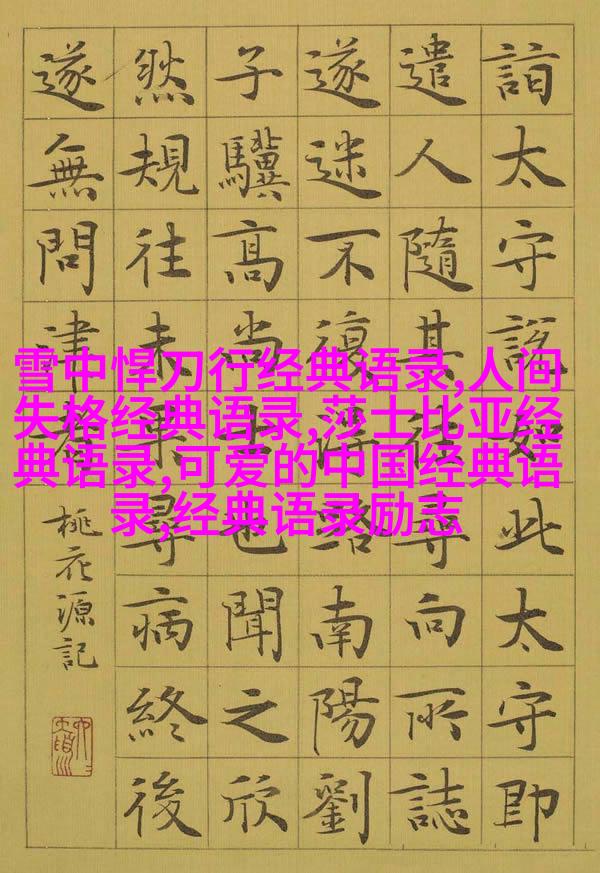 詣太守說如此太守即
遣人隨其往尋向所誌
遂迷不復得路南陽劉
子驥高尚士也聞之欣
然規往未果尋病終後
遂無問津者
桃花源記
雪中悍刀行经典语录,人间
失格经典语录,莎士比亚经
典语录,可爱的中国经典语
录,经典语录励志